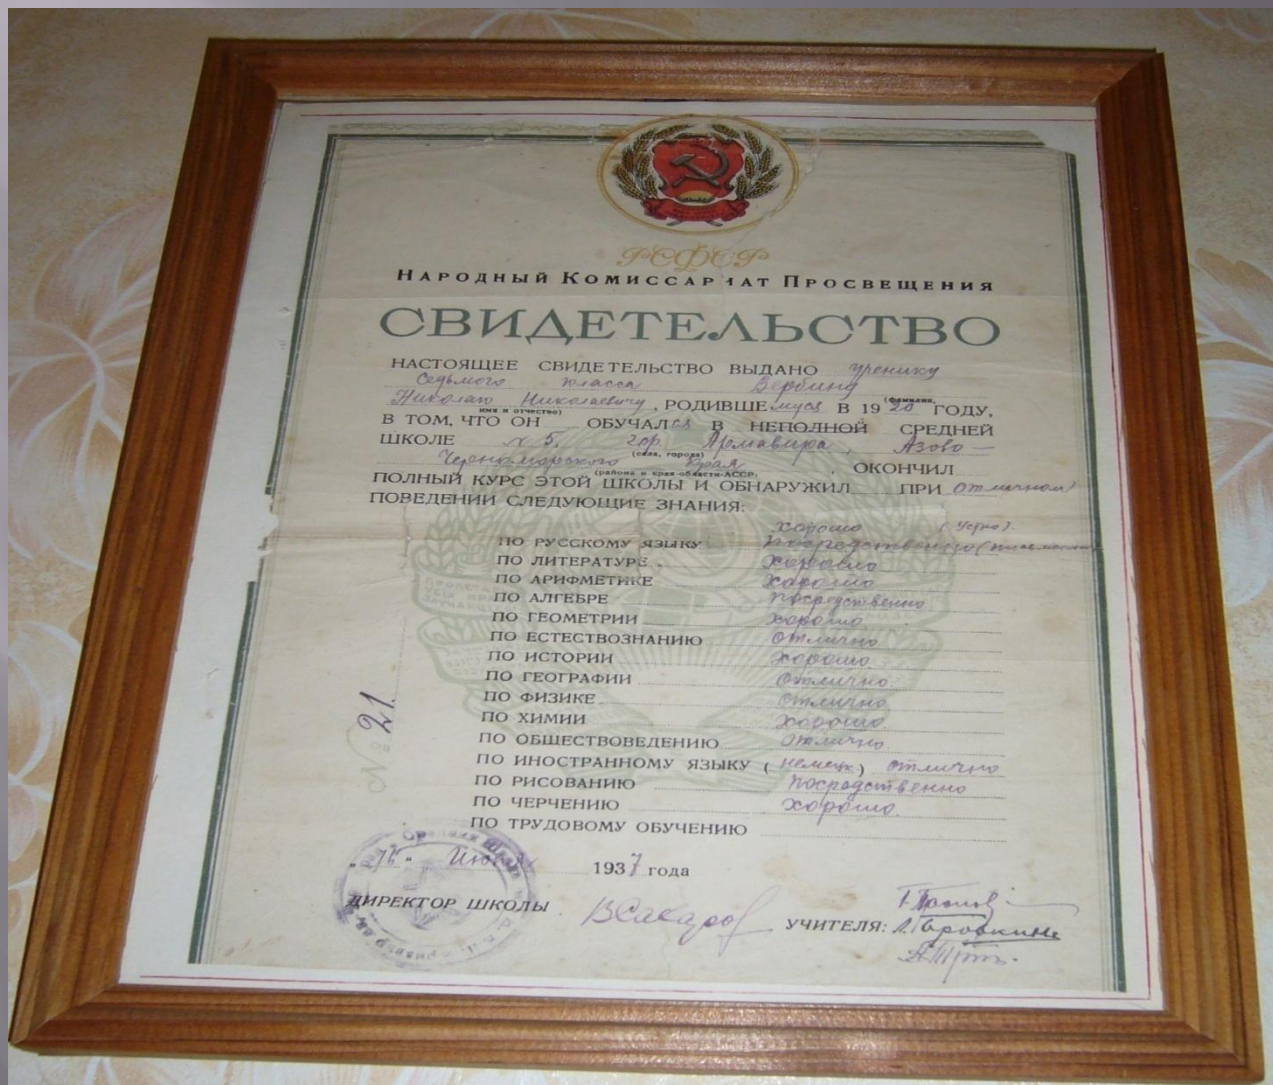 РСФСР
НАРОДНЫЙ КОМИССАРИАТ ПРОСВЕЩЕНИЯ
СВИДЕТЕЛЬСТВО
НАСТОЯЩЕЕ СВИДЕТЕЛЬСТВО ВЫДАНО ученику
седьмого класса Вербину
(фамилия,
Николаю Николаевичу, РОДИВШЕмуся В 1920 ГОДУ,
имя и отчество)
В ТОМ, ЧТО ОН ОБУЧАЛся В НЕПОЛНОЙ СРЕДНЕЙ
ШКОЛЕ № 5, гор. Армавира, Азово-
(села, города)
Черноморского Края, ОКОНЧИЛ
(района и края-области-АССР)
ПОЛНЫЙ КУРС ЭТОЙ ШКОЛЫ И ОБНАРУЖИЛ ПРИ отличном
ПОВЕДЕНИИ СЛЕДУЮЩИЕ ЗНАНИЯ:
хорошо (устно).
ПО РУССКОМУ ЯЗЫКУ посредственно (письменно
ПО ЛИТЕРАТУРЕ хорошо
ПО АРИФМЕТИКЕ хорошо
ПО АЛГЕБРЕ посредственно
ПО ГЕОМЕТРИИ хорошо
ПО ЕСТЕСТВОЗНАНИЮ отлично
ПО ИСТОРИИ хорошо.
ПО ГЕОГРАФИИ отлично.
ПО ФИЗИКЕ отлично
ПО ХИМИИ хорошо.
ПО ОБЩЕСТВОВЕДЕНИЮ отлично
ПО ИНОСТРАННОМУ ЯЗЫКУ (немецк) отлично
ПО РИСОВАНИЮ посредственно
ПО ЧЕРЧЕНИЮ хорошо.
ПО ТРУДОВОМУ ОБУЧЕНИЮ
№ 21.
"16" 1937 года
ДИРЕКТОР ШКОЛЫ
УЧИТЕЛЯ: